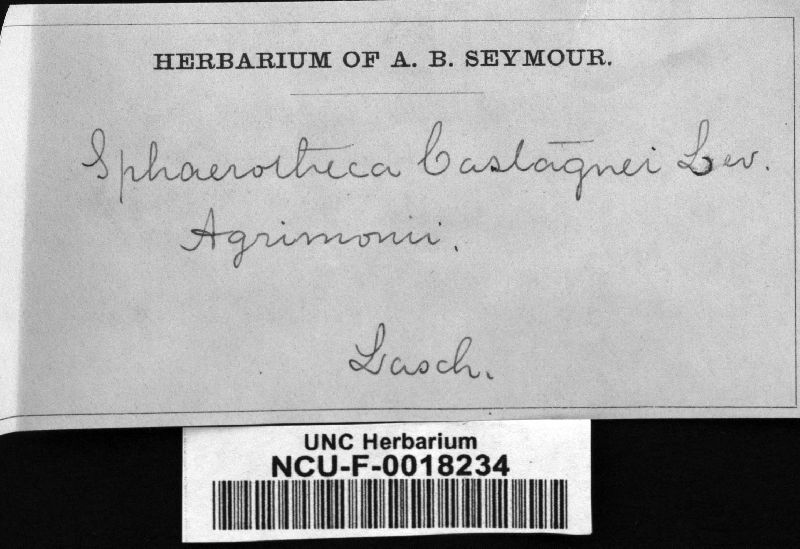 HERBARIUM OF A. B. SEYMOUR.
Sphaerotheca Castagnei Lev.
Agrimonii.
Lasch.
UNC Herbarium
NCU-F-0018234